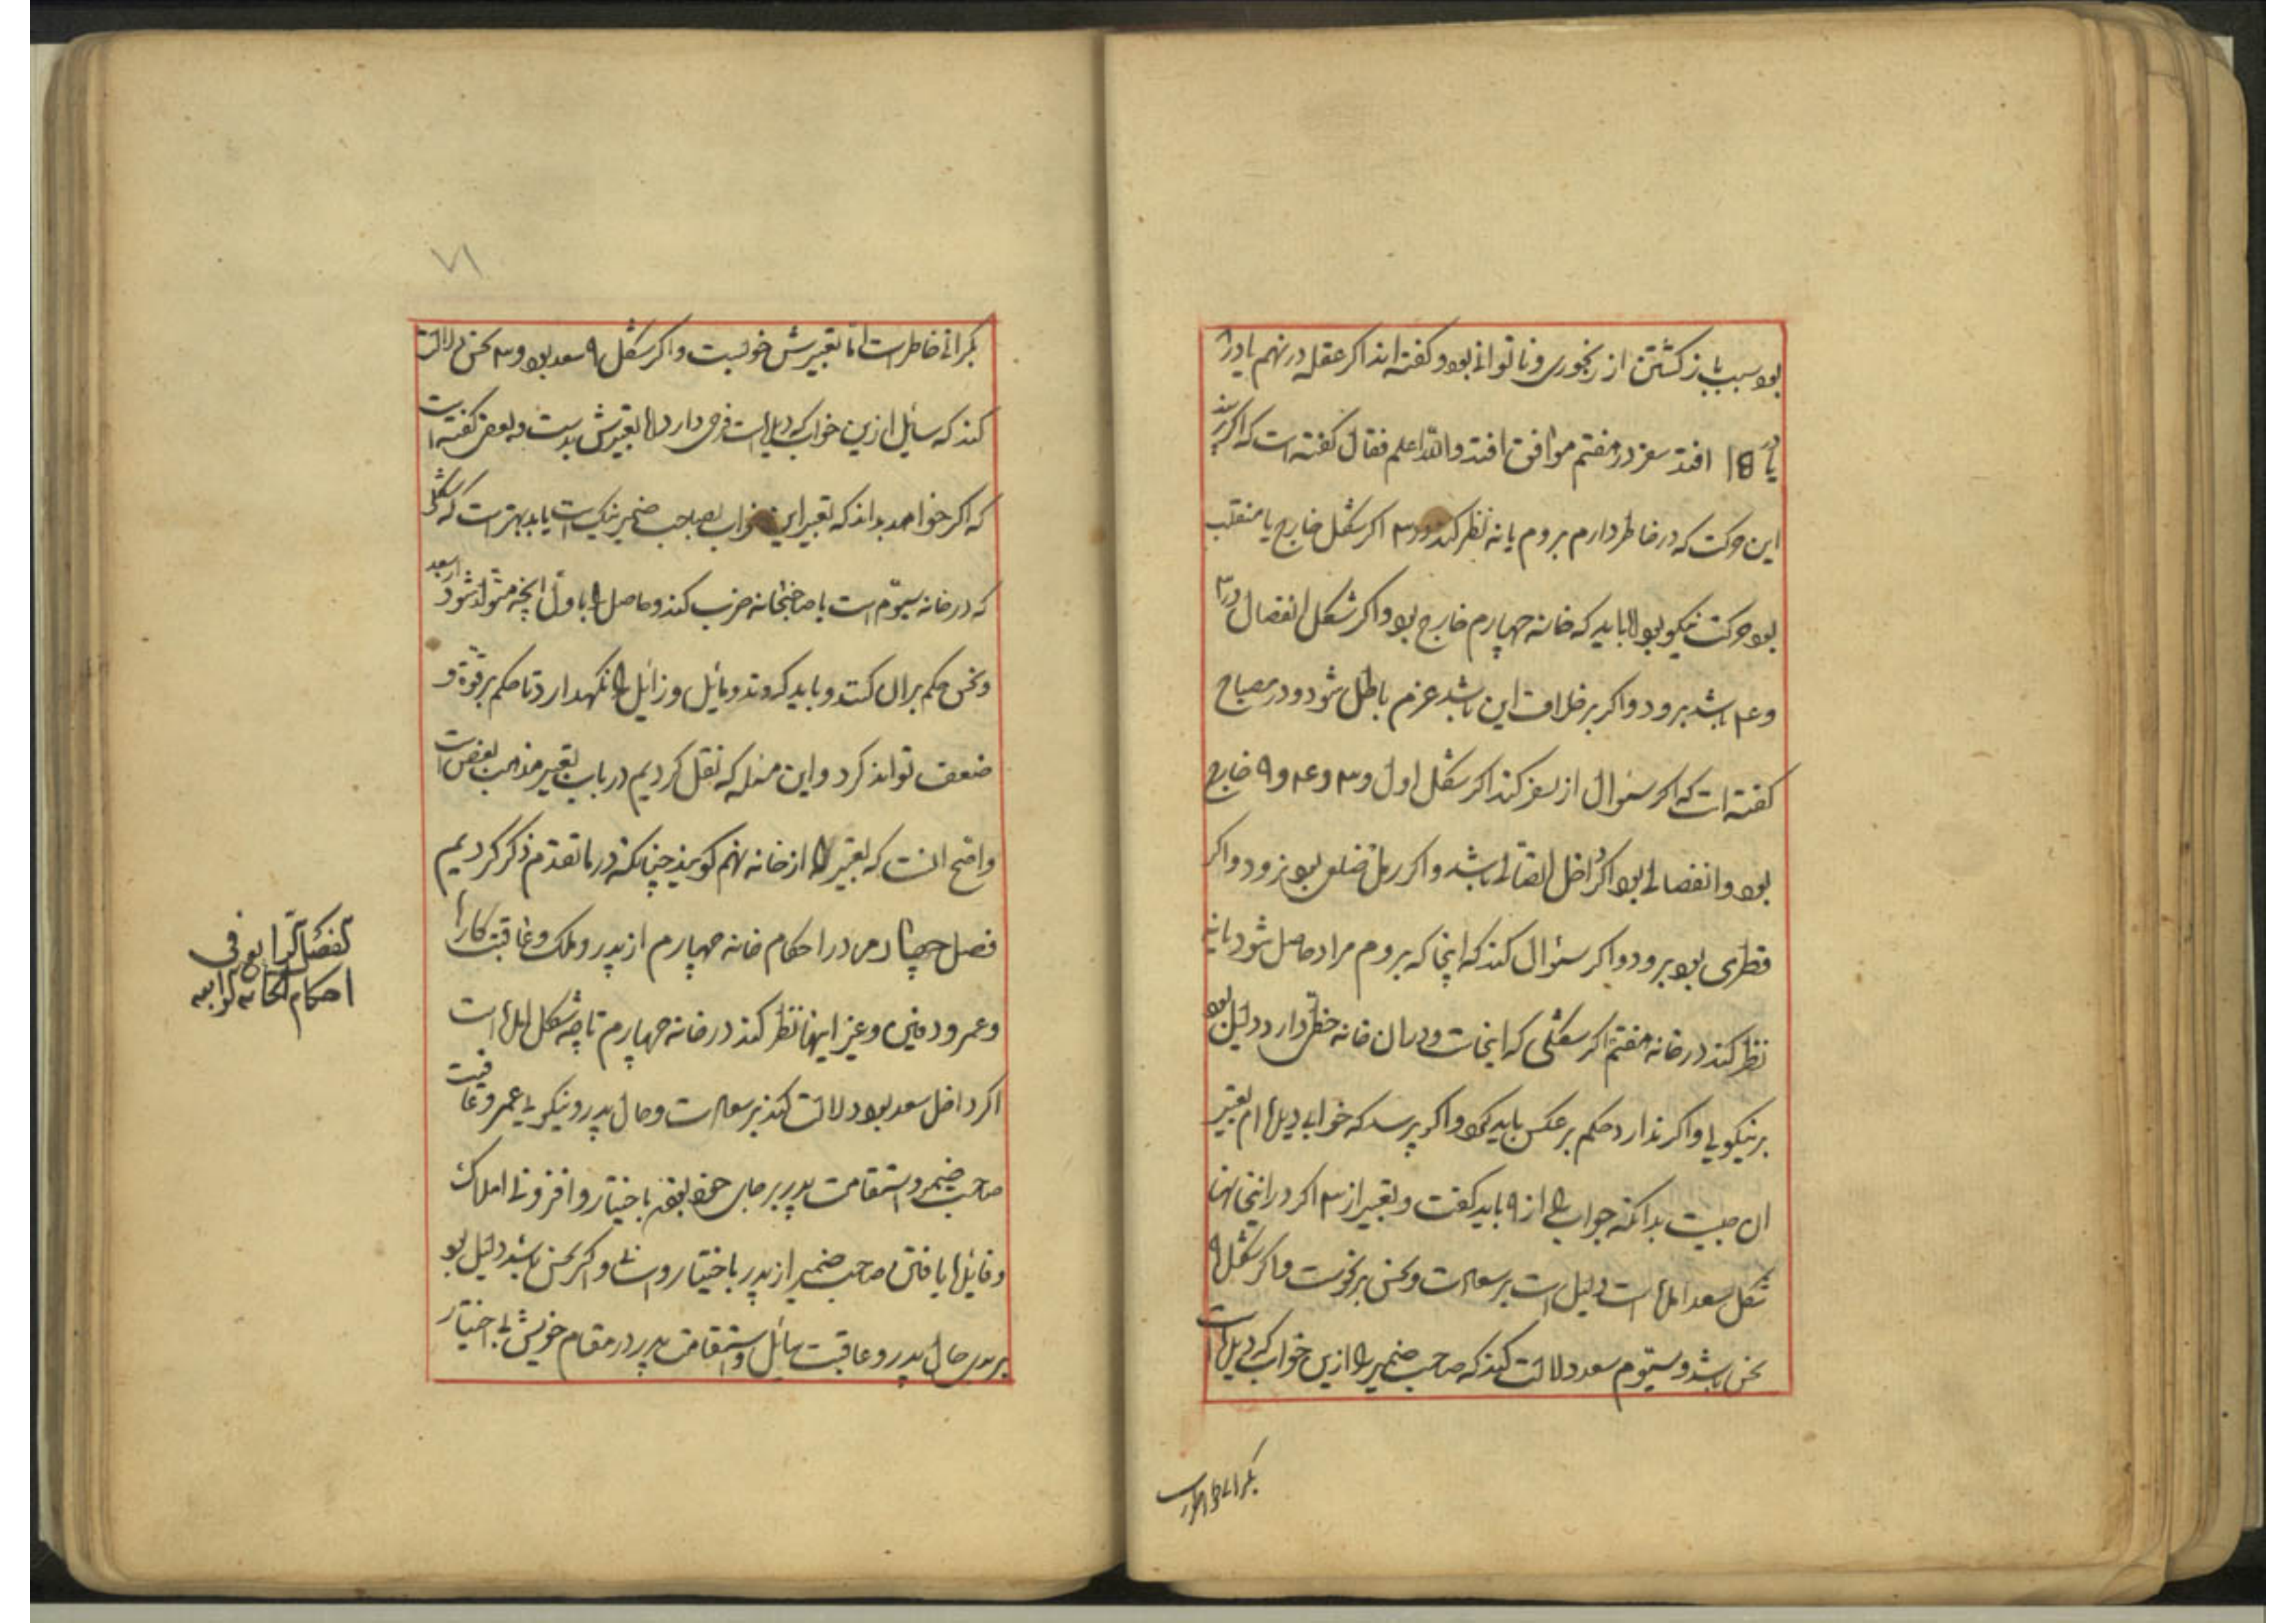 بود سبب باز کشتن از رنجوری و ناتوانی بود و کفته اند اکر عقله در نهم یا در
یا در افتد سفر در هفتم موافق افتد والله اعلم فقال کفته است که اکر پرسند
این حرکت که در خاطر دارم بروم یا نه نظر کند در ۳ اکر شکل خارج یا منقلب
بود حرکت نیکو بود اما باید که خانه چهارم خارج بود و اکر شکل انفصال در ۳
و ۴ باشد برود و اکر بر خلاف این باشد عزم باطل شود و در مصباح
کفته است که اکر سئوال از سفر کند اکر شکل اول و ۳ و ۴ و ۹ خارج
بود و انفصالی بود اکر داخل اتصالی باشد و اکر رمل ضلعی بود نرود و اکر
قطری بود برود و اکر سئوال کند که اینجا که بروم مراد حاصل شود یا نه
نظر کند در خانه هفتم اکر شکلی که اینجاست و در ان خانه حظی دارد دلیل بود
بر نیکویی و اکر ندارد حکم بر عکس باید کرد و اکر پرسد که خوابی دیده ام تعبیر
ان چیست بدانکه جواب را از ۹ باید کفت و تعبیر از ۳ اکر در اینجاها
شکل سعد امده است دلیل است بر سعادت و نحس بر نحوست و اکر شکل ۹
نحس باشد و سیوم سعد دلالت کند که صاحب ضمیر را ازین خواب که دیده است
نکرانی خاطر است
۷۱
نکرانی خاطر است اما تعبیرش خوبست و اکر شکل ۹ سعد بود و ۳ نحس دلالت
کند که سایل ازین خواب که دیده است فرحی دارد اما تعبیرش بدست و بعضی کفته است
که اکر خواهد بداند که تعبیر این خواب بصاحب ضمیر نیک است یا بد بهتر است که شکلی
که در خانه سیوم است با صاحبخانه ضرب کند و حاصل را با اول انچه متولد شود از سعد
و نحس حکم بران کند و باید که وتد و مائل و زائل را نکهدارد تا حکم بر قوة و
ضعف تواند کرد و این مسله که نقل کردیم در باب تعبیر مذهب بعض است
واضح انست که تعبیر را از خانه نهم کویند چنانکه در ما تقدم ذکر کردیم
فصل چهارم در احکام خانه چهارم از پدر و ملک و عاقبت کارها
و عمر و دفین و غیر اینها نظر کند در خانه چهارم تا چه شکل امده است
اکر داخل سعد بود دلالت کند بر سعادت و حال پدر و نیکویی عمر و عاقبت
صاحب ضمیر و استقامت پدر بر جای خود باختیار و افزونی املاک
و فائده یافتن صاحب ضمیر از پدر باختیار و اسانی و اکر نحس باشد دلیل بود
بر بدی حال پدر و عاقبت سائل و استقامت پدر در مقام خویش بی اختیار
الفصل الرابع فی
احکام الخانه الرابعه